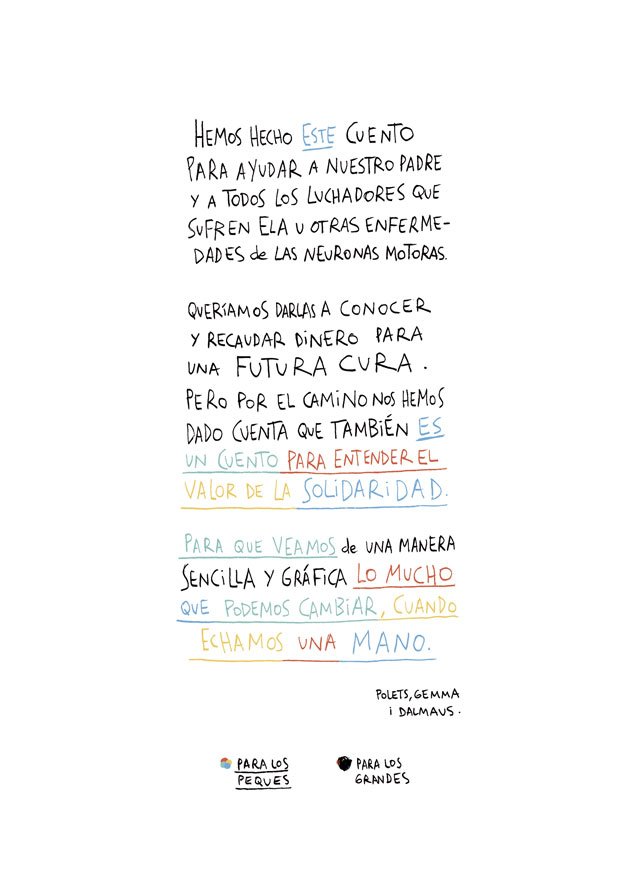 HEMOS HECHO ESTE CUENTO
PARA AYUDAR A NUESTRO PADRE
Y A TODOS LOS LUCHADORES QUE
SUFREN ELA U OTRAS ENFERME-
DADES de LAS NEURONAS MOTORAS.
QUERÍAMOS DARLAS A CONOCER
Y RECAUDAR DINERO PARA
UNA FUTURA CURA.
PERO POR EL CAMINO NOS HEMOS
DADO CUENTA QUE TAMBIÉN ES
UN CUENTO PARA ENTENDER EL
VALOR DE LA SOLIDARIDAD.
PARA QUE VEAMOS de UNA MANERA
SENCILLA Y GRÁFICA LO MUCHO
QUE PODEMOS CAMBIAR, CUANDO
ECHAMOS UNA MANO.
POLETS, GEMMA
i DALMAUS.
PARA LOS
PEQUES
PARA LOS
GRANDES